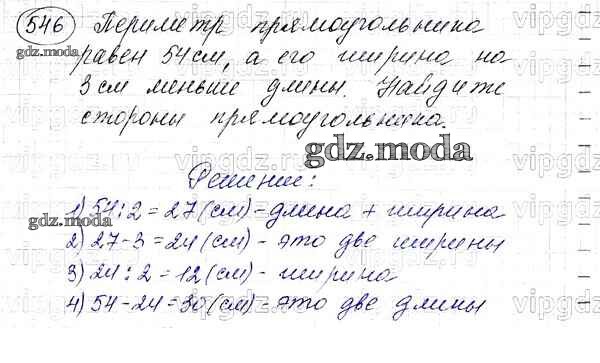 546 Периметр прямоугольника
gdz.moda
равен 54 см, а его ширина на
3 см меньше длины. Найдите
стороны прямоугольника.
gdz.moda
Решение:
1) 54:2=27(см)-длина + ширина
gdz.moda
2) 27-3=24(см)-это две ширины
3) 24:2=12(см)-ширина
4) 54-24=30(см)-это две длины
gdz.moda
vipgdz.ru